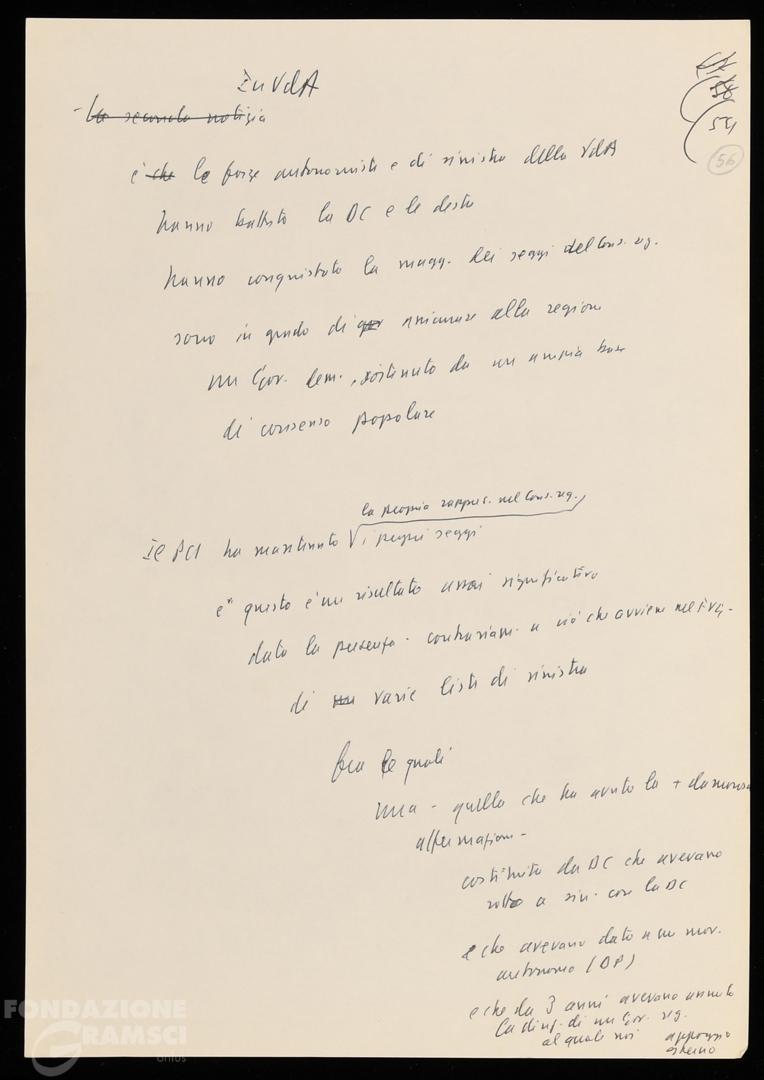 In VdA
- La seconda notizia
58
54
56
è che le forze autonomiste e di sinistra della VdA
hanno battuto la DC e le destre
hanno conquistato la magg. dei seggi del Cons. reg.
sono in grado di assicurare alla regione
un Gov. dem., sostenuto da un ampia base
di consenso popolare
la propria rappres. nel Cons. reg.
Il PCI ha mantenuto i propri seggi
e questo è un risultato assai significativo
data la presenza - contrariam. a ciò che avviene nel
di varie liste di sinistra
fra le quali
una - quella che ha avuto la + clamorosa
affermazione -
costituita da DC che avevano
rotto a sin. con la DC
e che avevano dato a un mov.
autonomo (DP)
e che da 3 anni avevano assunto
la dir. di un Gov. reg.
al quale noi appoggio
esterno
FONDAZIONE
GRAMSCI
onlus